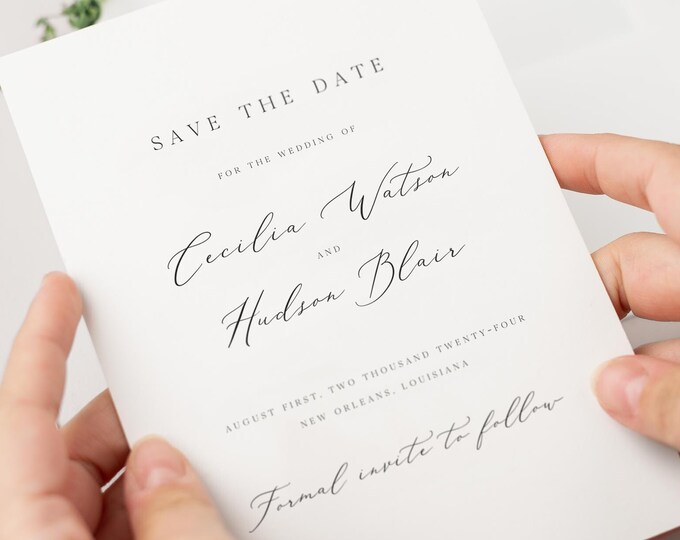 SAVE THE DATE
FOR THE WEDDING OF
Cecilia Watson
AND
Hudson Blair
AUGUST FIRST, TWO THOUSAND TWENTY-FOUR
NEW ORLEANS, LOUISIANA
Formal invite to follow